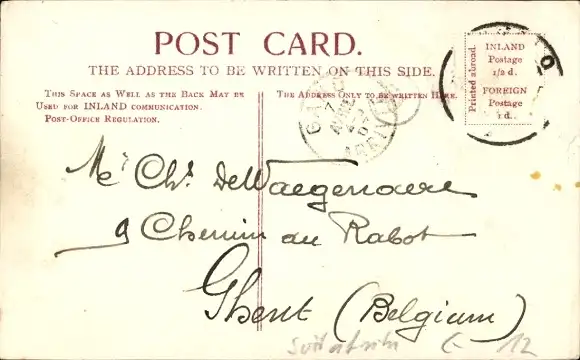 POST CARD.
THE ADDRESS TO BE WRITTEN ON THIS SIDE.
This Space as Well as the Back May be
Used for INLAND communication.
Post-Office Regulation.
The Address Only to be written Here.
Printed abroad.
INLAND
Postage
1/2 d.
FOREIGN
Postage
1 d.
Mr Chs. DeWaegenaere
9 Chemin du Rabot
Ghent (Belgium)
12